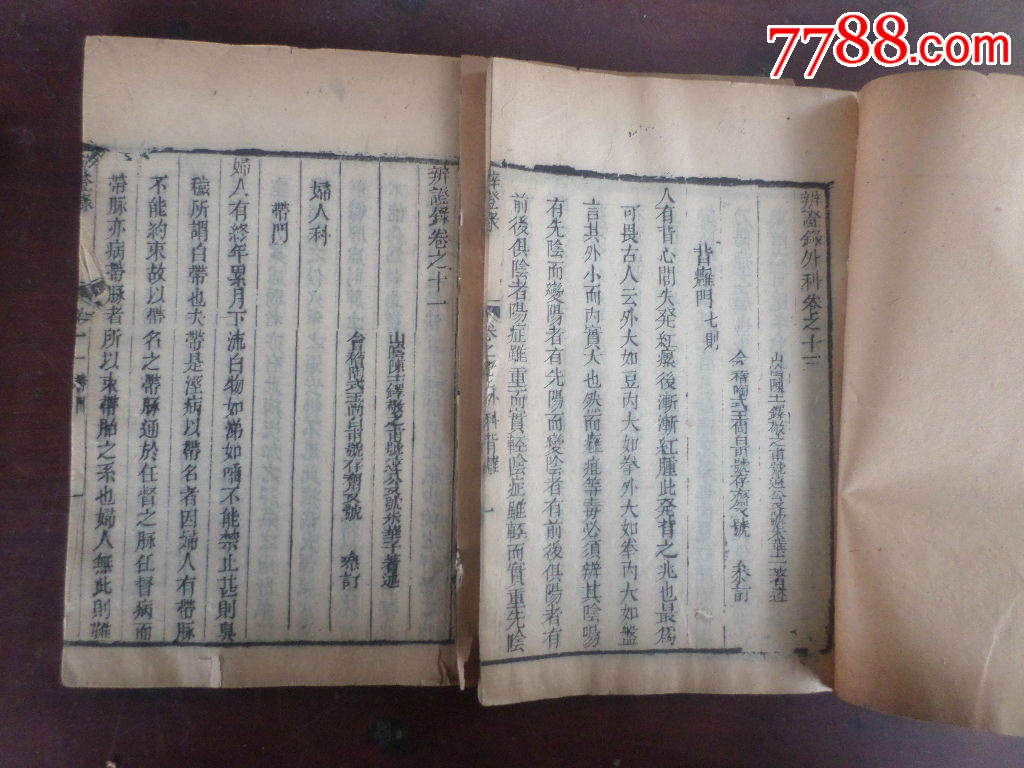 7788.com
辨證錄外科卷之十三
山陰陳士鐸敬之甫號遠公又號朱華子著述
會稽陶式玉尚白甫號存齋又號　　參訂
背癰門七則
人有背心間先發紅瘰後漸漸紅腫此發背之兆也最爲
可畏古人云外大如豆內大如拳外大如拳內大如盤
言其外小而內實大也然而癰疽等毒必須辨其陰陽
有先陰而變陽者有先陽而變陰者有前後俱陽者有
前後俱陰者陽症雖重而實輕陰症雖輕而實重先陰
辨證錄
外科背癰
一
辨證錄卷之十一
山陰陳士鐸敬之甫號遠公又號朱華子著述
會稽陶式玉尚白甫號存齋又號　　參訂
婦人科
帶門
婦人有終年累月下流白物如涕如唾不能禁止甚則臭
穢所謂白帶也夫帶是溼病以帶名者因婦人有帶脉
不能約束故以帶名之帶脉通於任督之脉任督病而
帶脉亦病帶脉者所以束帶胎之系也婦人無此則難